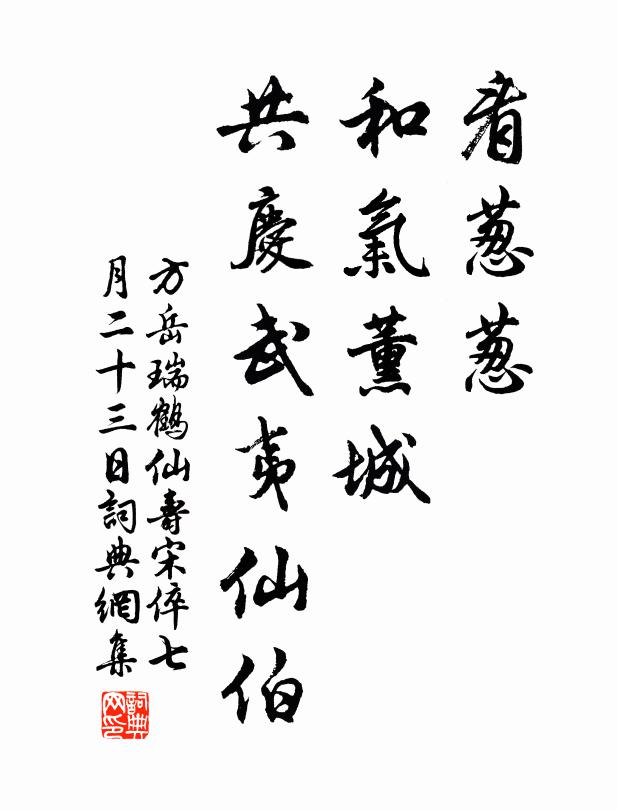 看葱葱
和氣薰城
共慶武夷仙伯
方岳瑞鶴仙壽宋倅七
月二十三日詞典網集
詞典网印